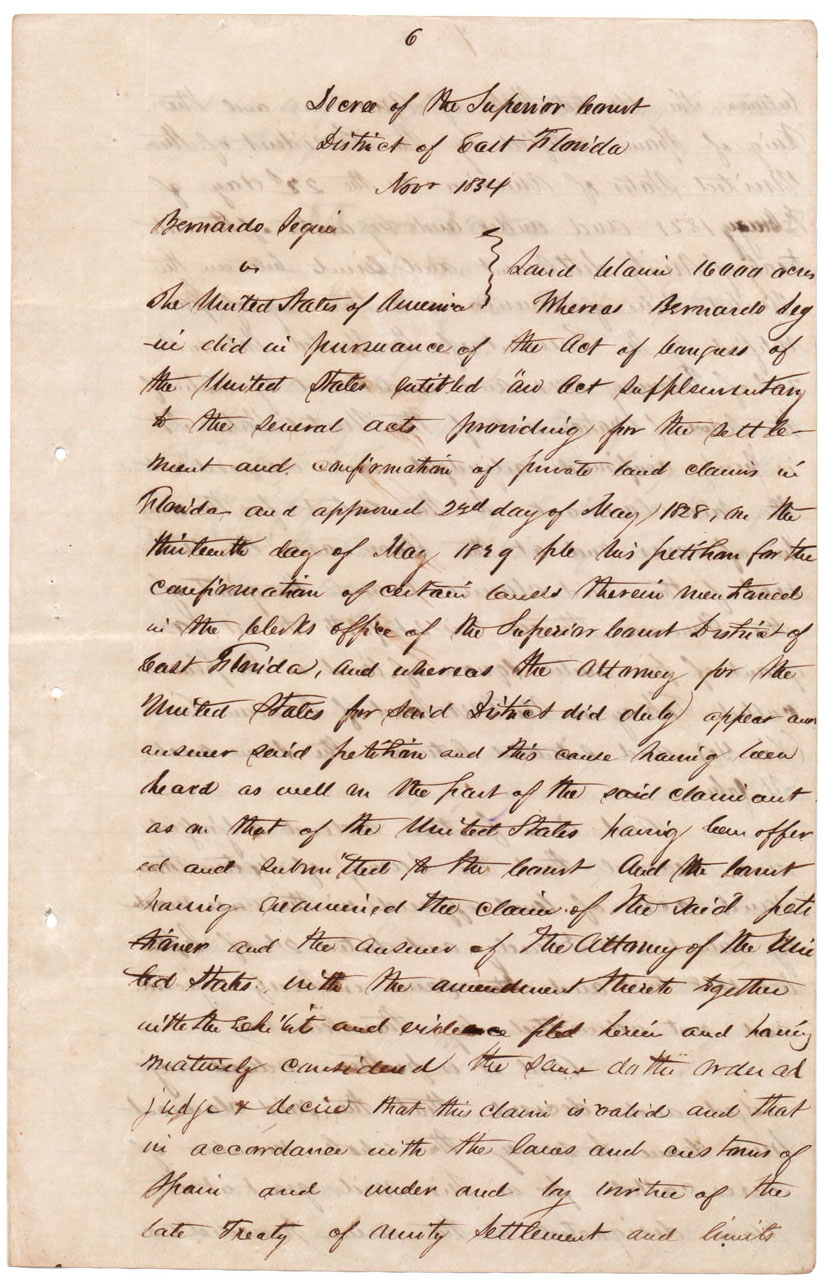 6
Decree of the Superior Court
District of East Florida
Novr 1834
Bernardo Segui
vs
The United States of America
Land Claim 16000 acres
Whereas Bernardo Seg
-ui did in pursuance of the Act of Congress of
the United States entitled "an Act supplementary
to the several acts providing for the settle-
ment and confirmation of private land claims in
Florida and approved 23rd day of May 1828, on the
thirteenth day of May 1829 file his petition for the
confirmation of certain lands therein mentioned
in the Clerks office of the Superior Court District of
East Florida, and whereas the Attorney for the
United States for said District did duly appear and
answer said petition and this cause having been
heard as well on the part of the said claimant
as on that of the United States having been offer
ed and submitted to the Court And the Court
having examined the claim of the said peti
tioner and the answer of the Attorney of the Uni
ted States with the amendment thereto together
with the Exhibits and evidence filed herein and having
maturely considered the same doth order ad
judge & decree that this claim is valid and that
in accordance with the laws and customs of
Spain and under and by virtue of the
late Treaty of amity settlement and limits